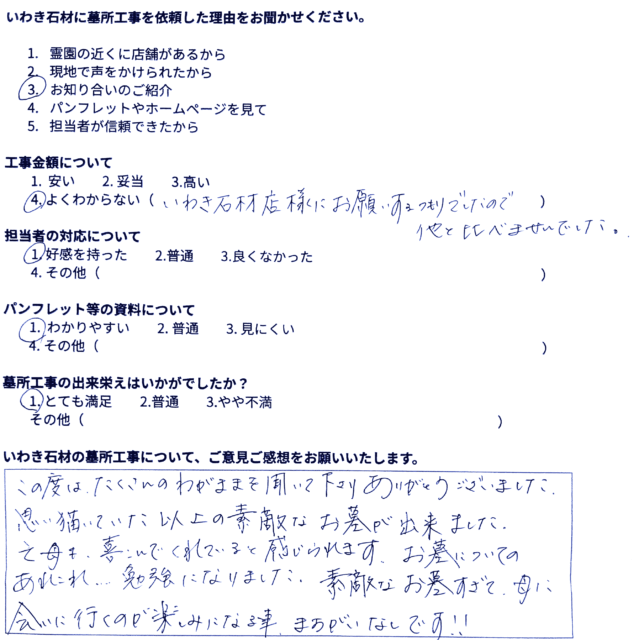 いわき石材に墓所工事を依頼した理由をお聞かせください。
1. 霊園の近くに店舗があるから
2. 現地で声をかけられたから
3. お知り合いのご紹介
4. パンフレットやホームページを見て
5. 担当者が信頼できたから
工事金額について
1. 安い 2. 妥当 3.高い
4.よくわからない（いわき石材店様にお願いするつもりでしたので）
他と比べませんでした。
担当者の対応について
1.好感を持った 2.普通 3.良くなかった
4.その他（ ）
パンフレット等の資料について
1.わかりやすい 2. 普通 3. 見にくい
4.その他（ ）
墓所工事の出来栄えはいかがでしたか？
1.とても満足 2.普通 3.やや不満
その他（ ）
いわき石材の墓所工事について、ご意見ご感想をお願いいたします。
この度は、たくさんのわがままを聞いて下さりありがとうございました。
思い描いていた以上の素敵なお墓が出来ました。
亡母も、喜んでくれていると感じられます。お墓についての
あれこれ…勉強になりました。素敵なお墓すぎて、母に
会いに行くのが楽しみになる事、まちがいなしです!!